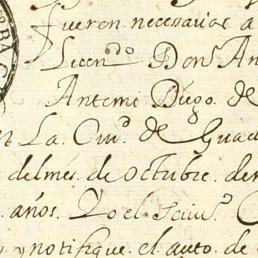 fueren necesarias a
Licen.do Don. An
Antemi Diego. de
en La Ciu.d de Guad
del mes. de octubre. de
años. Yo el Scriu.o
y notifique. el auto. de